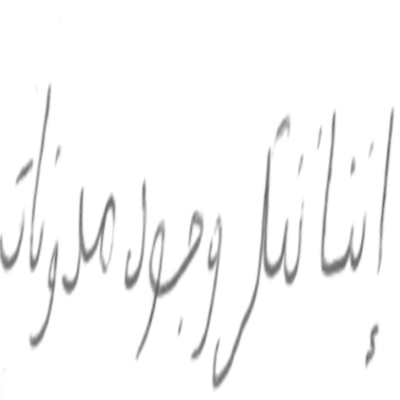 إننا ننكر وجود مدونات